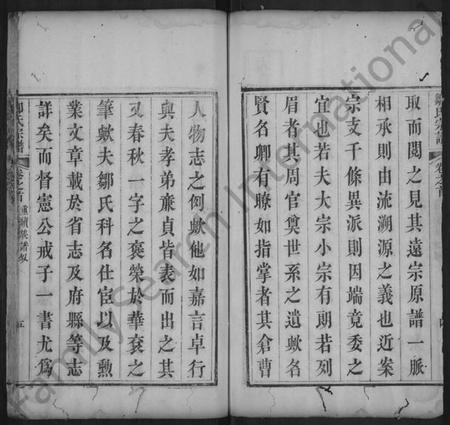 取而閱之見其遠宗原譜一脈
相承則由流溯源之義也近案
宗支千條異派則因端竟委之
宜也若夫大宗小宗有朗若列
眉者其周官奠世系之遺歟名
賢名卿有瞭如指掌者其倉曹
人物志之例歟他如嘉言卓行
與夫孝弟亷貞皆表而出之其
又春秋一字之褒榮於華衮之
筆歟夫鄒氏科名仕宦以及勲
業文章載於省志及府縣等志
詳矣而督憲公戒子一書尤為
鄒氏宗譜 卷之首 重續族譜叙 五
FamilySearch International